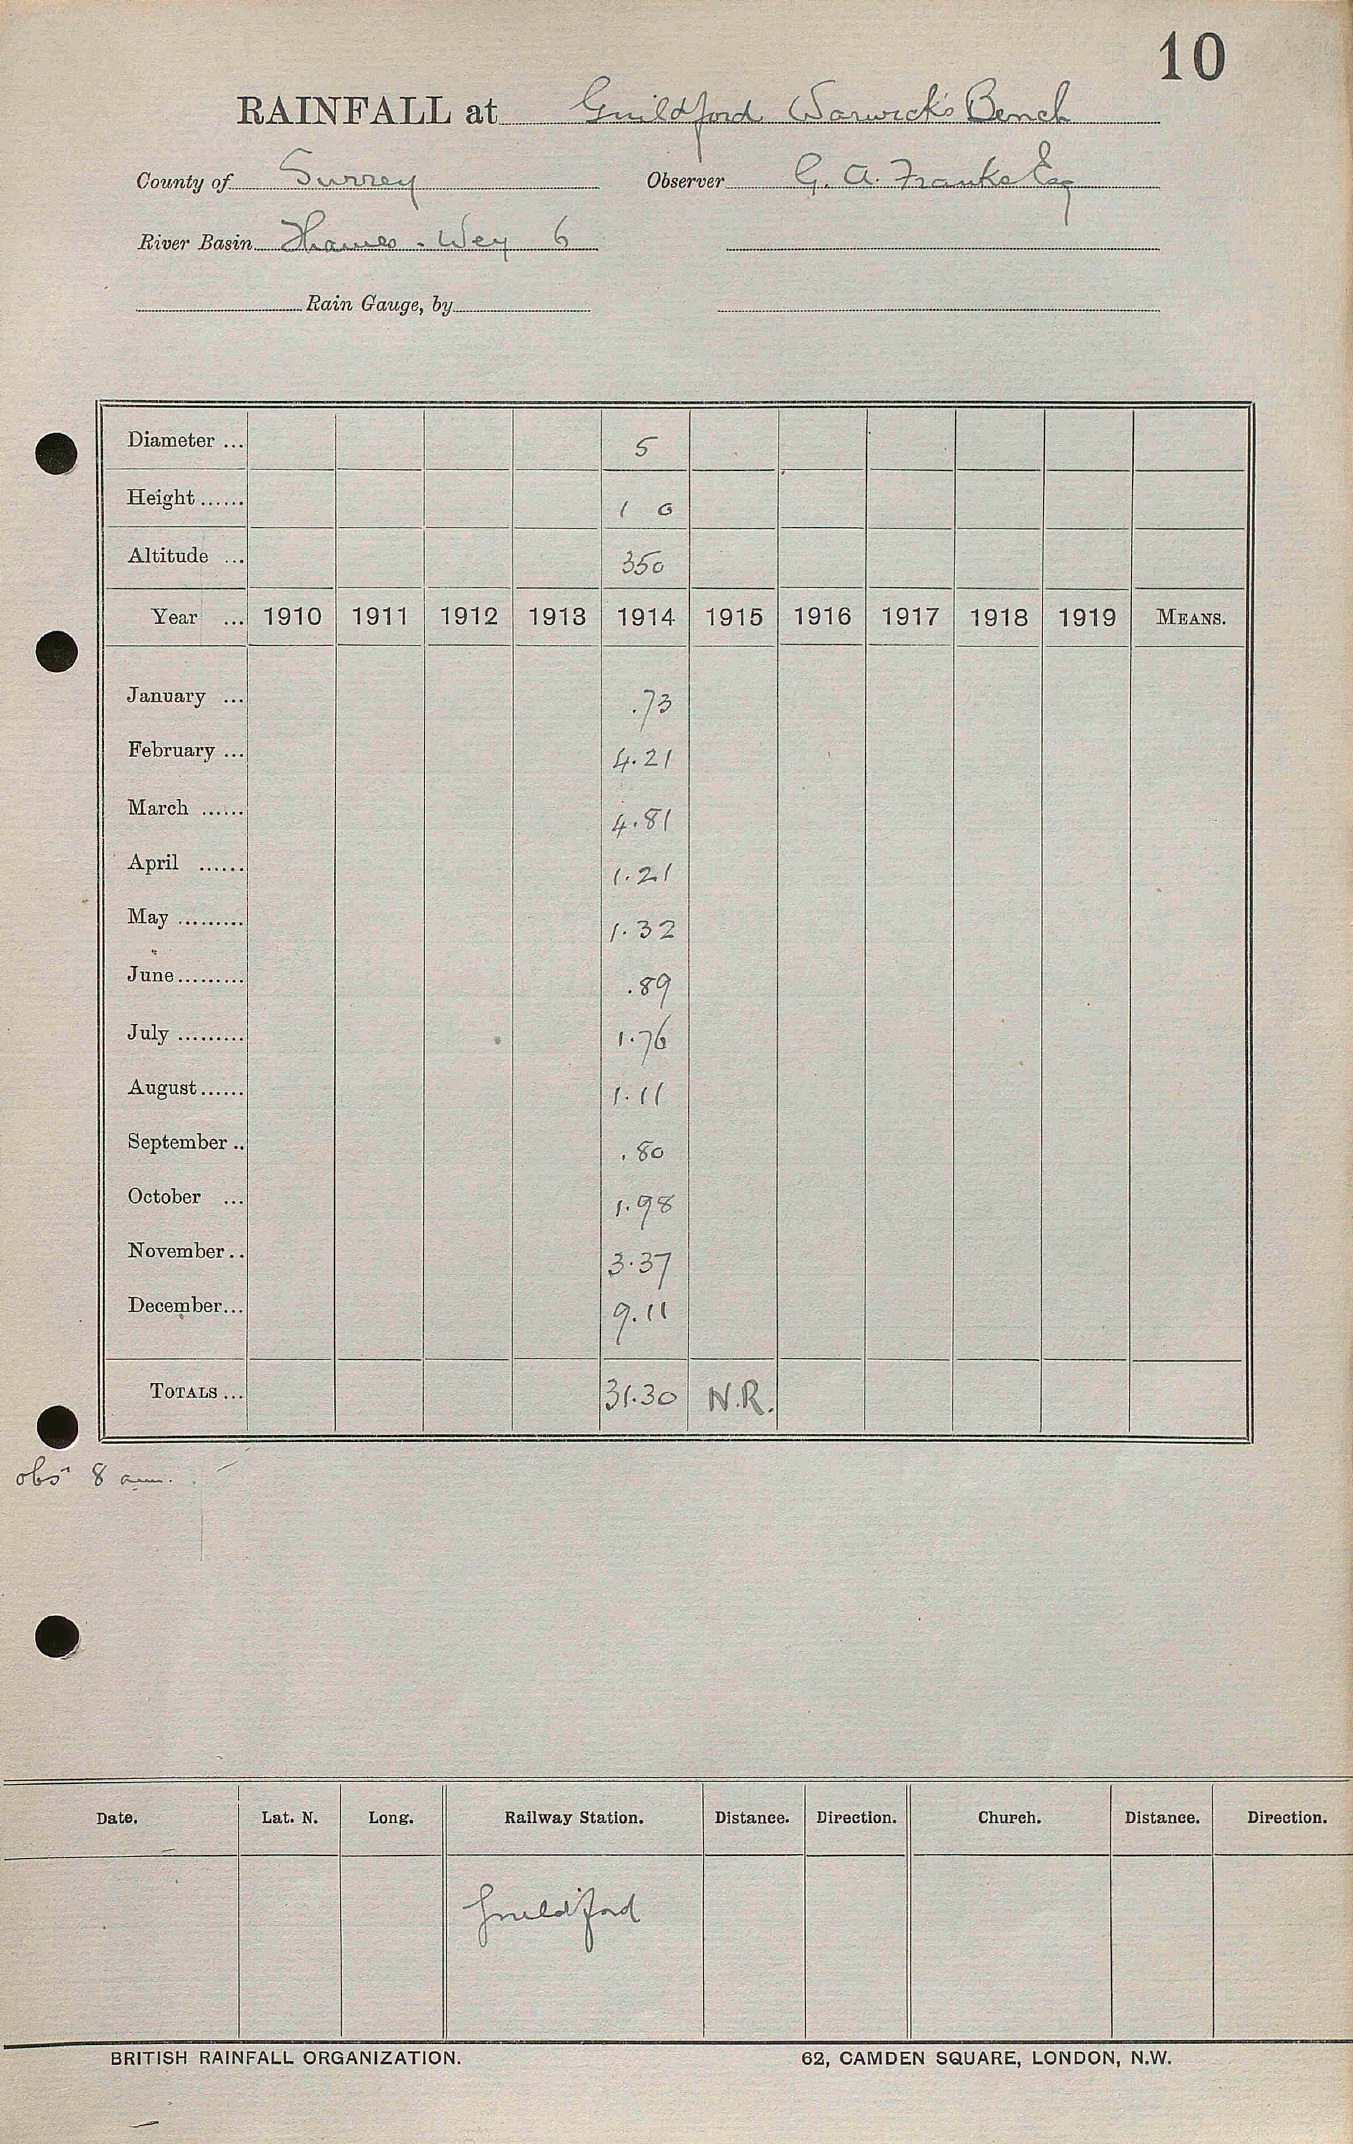 10
RAINFALL at Guildford Warwick's Bench
County of Surrey Observer G. A. Franks Esq
River Basin Thames - Wey 6
Rain Gauge, by
Diameter ... 5
Height ...... 1 0
Altitude ... 350
Year ... 1910 1911 1912 1913 1914 1915 1916 1917 1918 1919 MEANS.
January ... .73
February ... 4.21
March ...... 4.81
April ...... 1.21
May ......... 1.32
June ......... .89
July ......... 1.76
August ...... 1.11
September .. .80
October ... 1.98
November .. 3.37
December ... 9.11
TOTALS ... 31.30 N.R.
obsn 8 am.
Date. Lat. N. Long. Railway Station. Distance. Direction. Church. Distance. Direction.
Guildford
BRITISH RAINFALL ORGANIZATION. 62, CAMDEN SQUARE, LONDON, N.W.